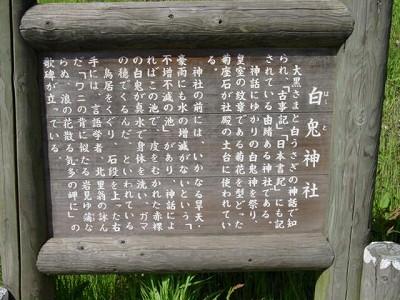 白兎神社
はくと
大黒さまと白うさぎの神話で知
られ、「古事記」「日本書記」にも記
されている由緒ある神社である。
神話にゆかりの白兎神を祭り、
皇室の紋章である菊花を型どった
菊座石が社殿の土台に使われてい
る。
神社の前には、いかなる旱天・
豪雨にも水の増減がないという「
不増不減の池」があり、神話によ
ればこの池で、皮をむかれた赤裸
の白兎が真水で身体を洗い、ガマ
の穂でくるんだ、といわれている。
鳥居をくぐり、石段を上った右
手には、言語学者、北里翁の詠ん
だ「ワニの背に似たる岩見ゆ蒲な
らぬ、浪の花散る気多の岬に」の
歌碑が立っている。